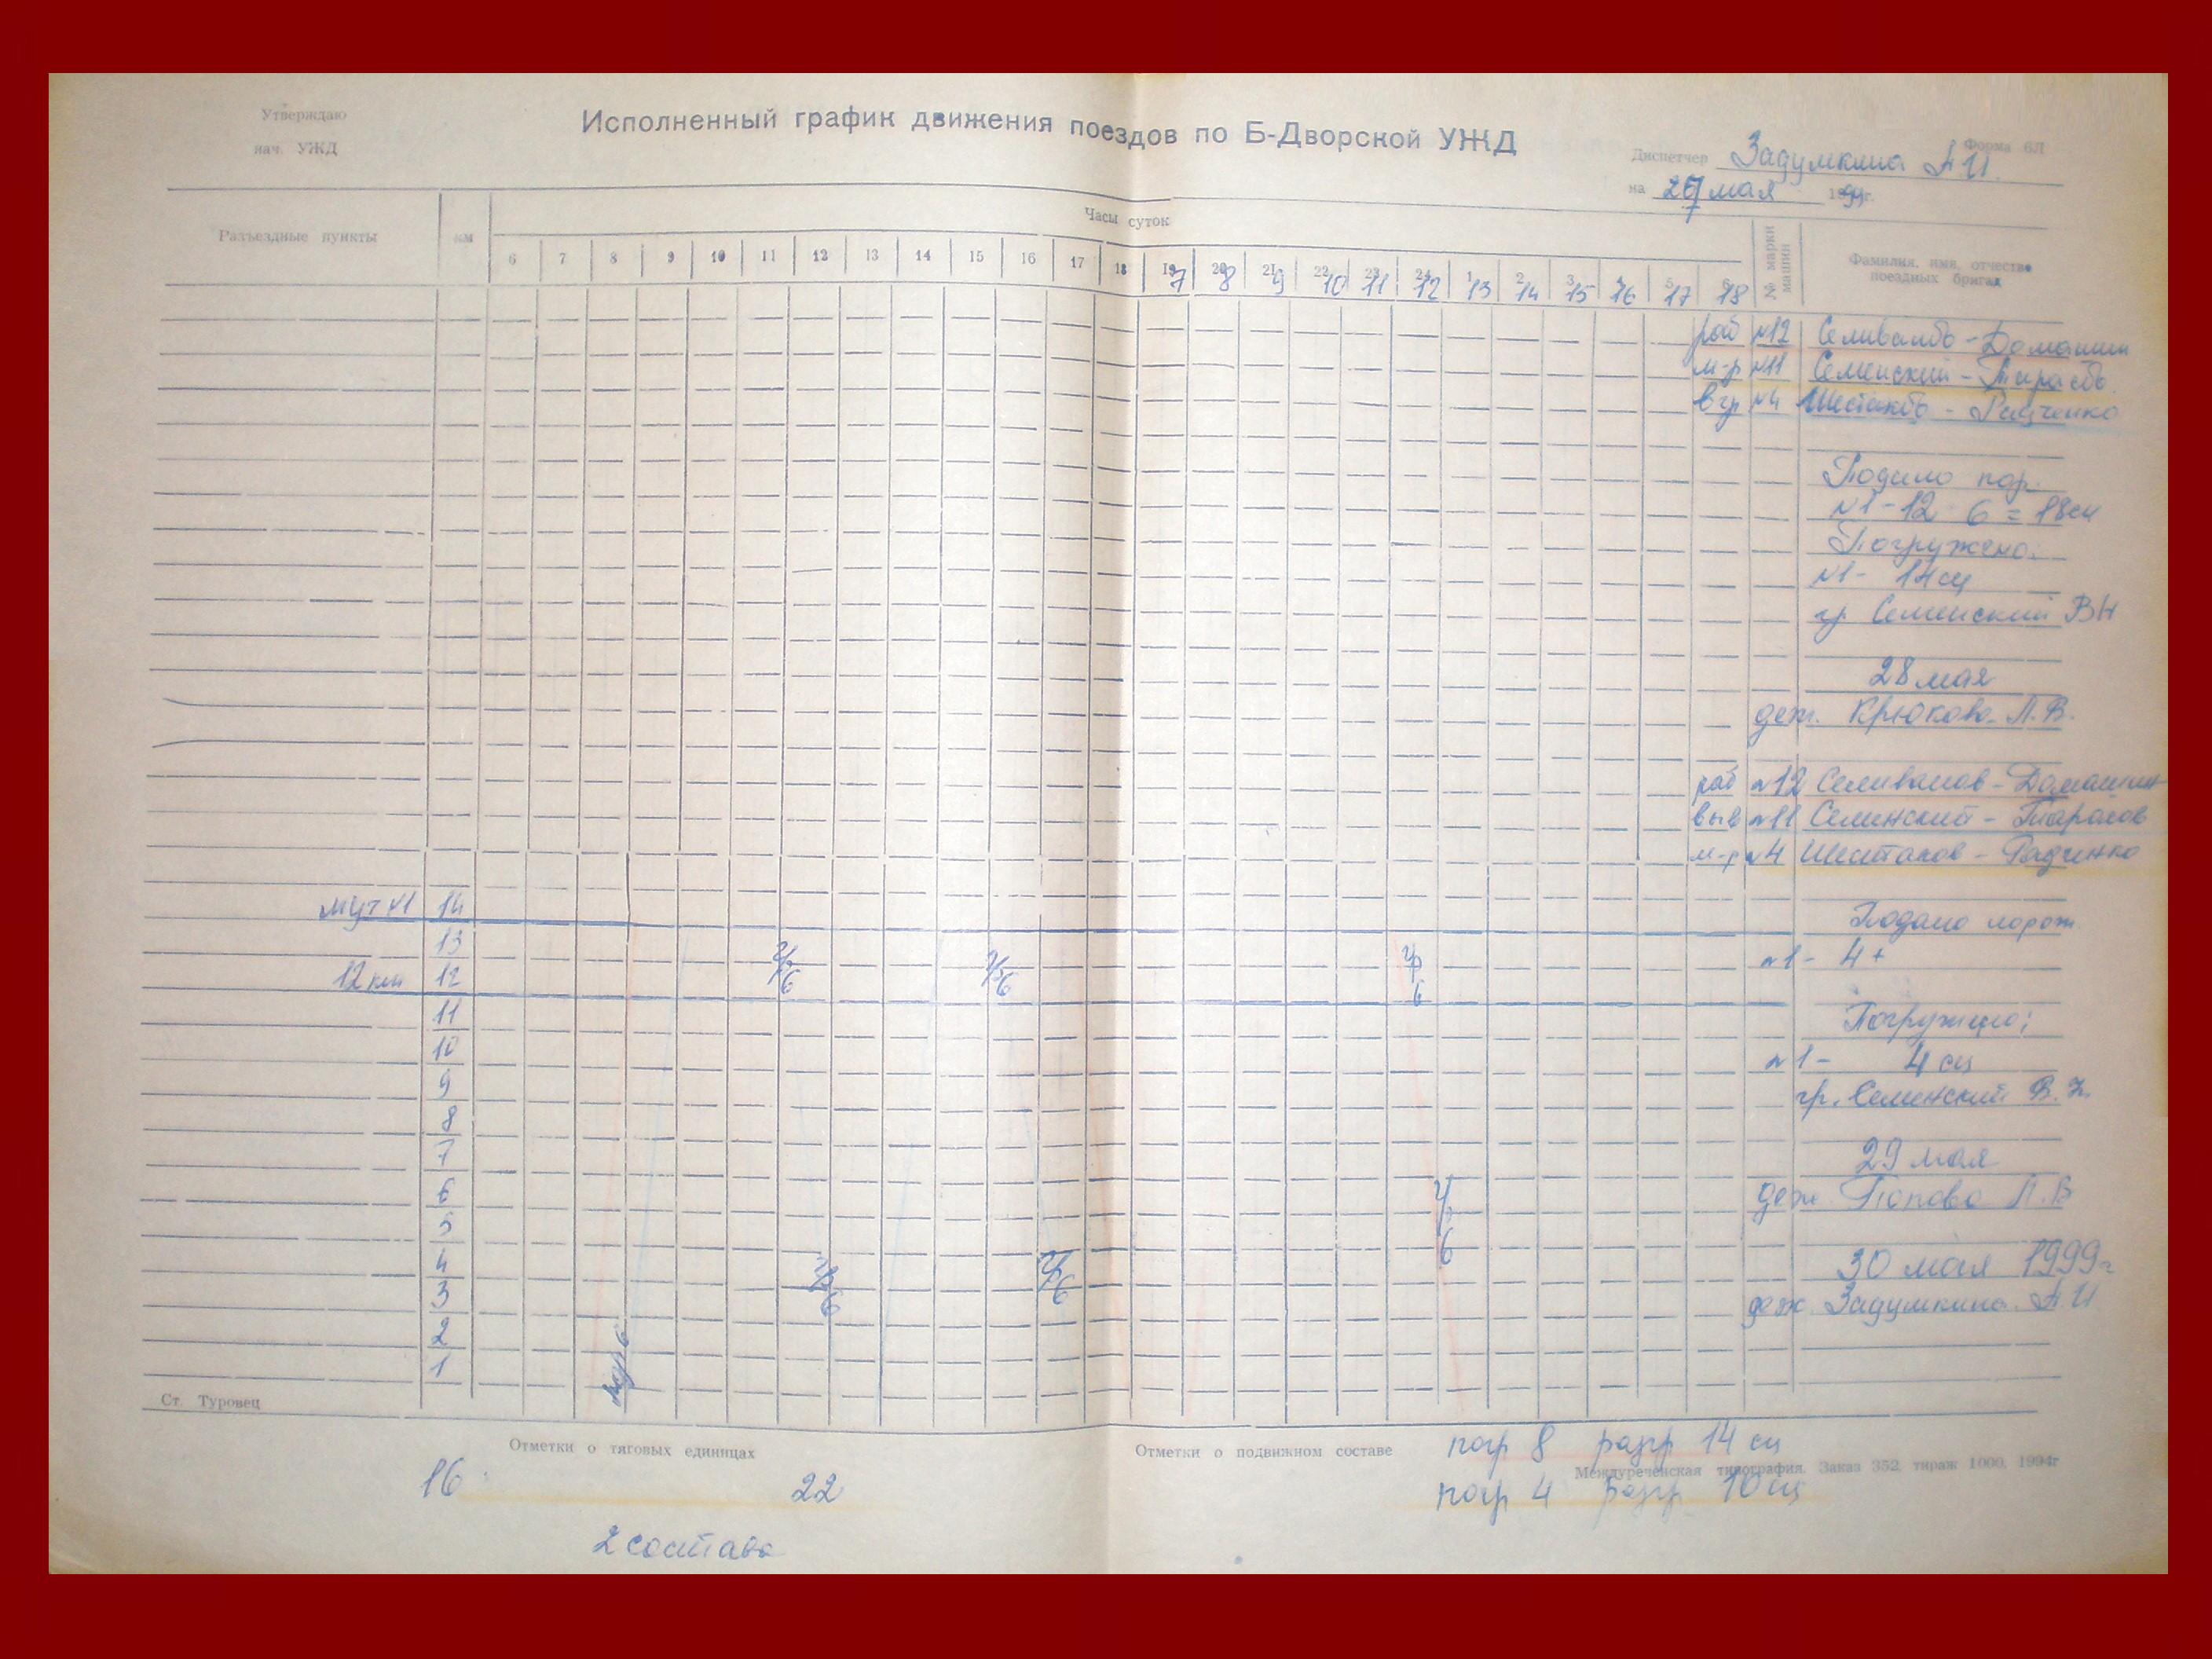 Утверждаю
нач. УЖД
Исполненный график движения поездов по Б-Дворской УЖД
Форма 6Л
Диспетчер Задумкина А И.
на 27 мая 1999г.
Разъездные пункты км Часы суток № марки машин Фамилия, имя, отчество поездных бригад
6 7 8 9 10 11 12 13 14 15 16 17 18 19 20 21 22 23 24 1 2 3 4 5 6
7 8 9 10 11 12 13 14 15 16 17 18
раб №12 Селиванов - Домашин
м-р №11 Семенский - Тарасов
вгр №4 Шестаков - Радченко
пор.
№1 - 12 6 = 18сц
Погружено:
№1 - 14сц
гр Семенский ВН
28 мая
деж. Крюкова Л.В.
раб №12 Селиванов - Домашин
выв №11 Семенский - Тарасов
м-р №4 Шестаков - Радченко
Подано порож.
№1 - 4+
Погружено;
№1 - 4 сц
гр. Семенский В.Н.
29 мая
деж Попова Л.В
30 мая 1999г
деж. Задумкина А.И
№1 14
13
12км 12
11
10
9
8
7
6
5
4
3
2
1
6 6 6
6
6 6
6
Ст. Туровец
Отметки о тяговых единицах
Отметки о подвижном составе
погр 8 разгр 14 сц
погр 4 разгр 10 сц
Междуреченская типография. Заказ 352, тираж 1000, 1994г
16 22
2 состава